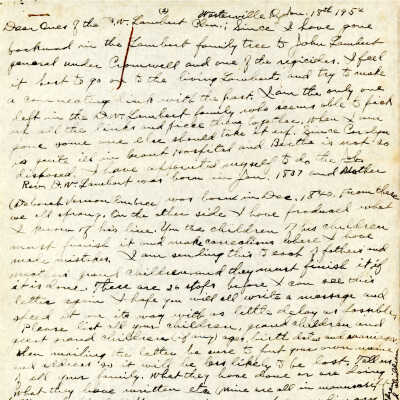 (2) Westerville Ohio. 18th, 1952
Dear Ones of the D.W. Lambert Clan; Since I have gone
backward in the Lambert family tree to John Lambert
general under Cromwell and one of the regicides. I feel
it best to go on to the living Lamberts, and try to make
a connecting link with the past. I am the only one
left in the D.W. Lambert family who seems able to pick
up all the links and piece them together. When I am
gone some one else should take it up. Since Carolyn
is quite ill in Grant Hospital and Bertha is not so
disposed, I have appointed myself to do the
Rev. D.W. Lambert was born in Jan, 1837 and Mother
(Deborah Vernon Embree) was born in Dec, 1840. From these
we all sprang. On the other side I have produced what
I know of his line. You the children of his children
must furnish it and make corrections where I have
made mistakes. I am sending this to each of fathers and
great grand children and they must finish it if
it is done. There are stops before I can see this
letter again. I hope you will all write a message and
speed it on its way with as little delay as possible.
Please list all your children, grand children and
great grand children (if any) ages, birth dates and marriages
When mailing the letter be sure to put your own name
and address so it will be less likely to be lost. Tell us
of all your family. What they have done or are doing
What they have written etc. (mine are all in manuscript)